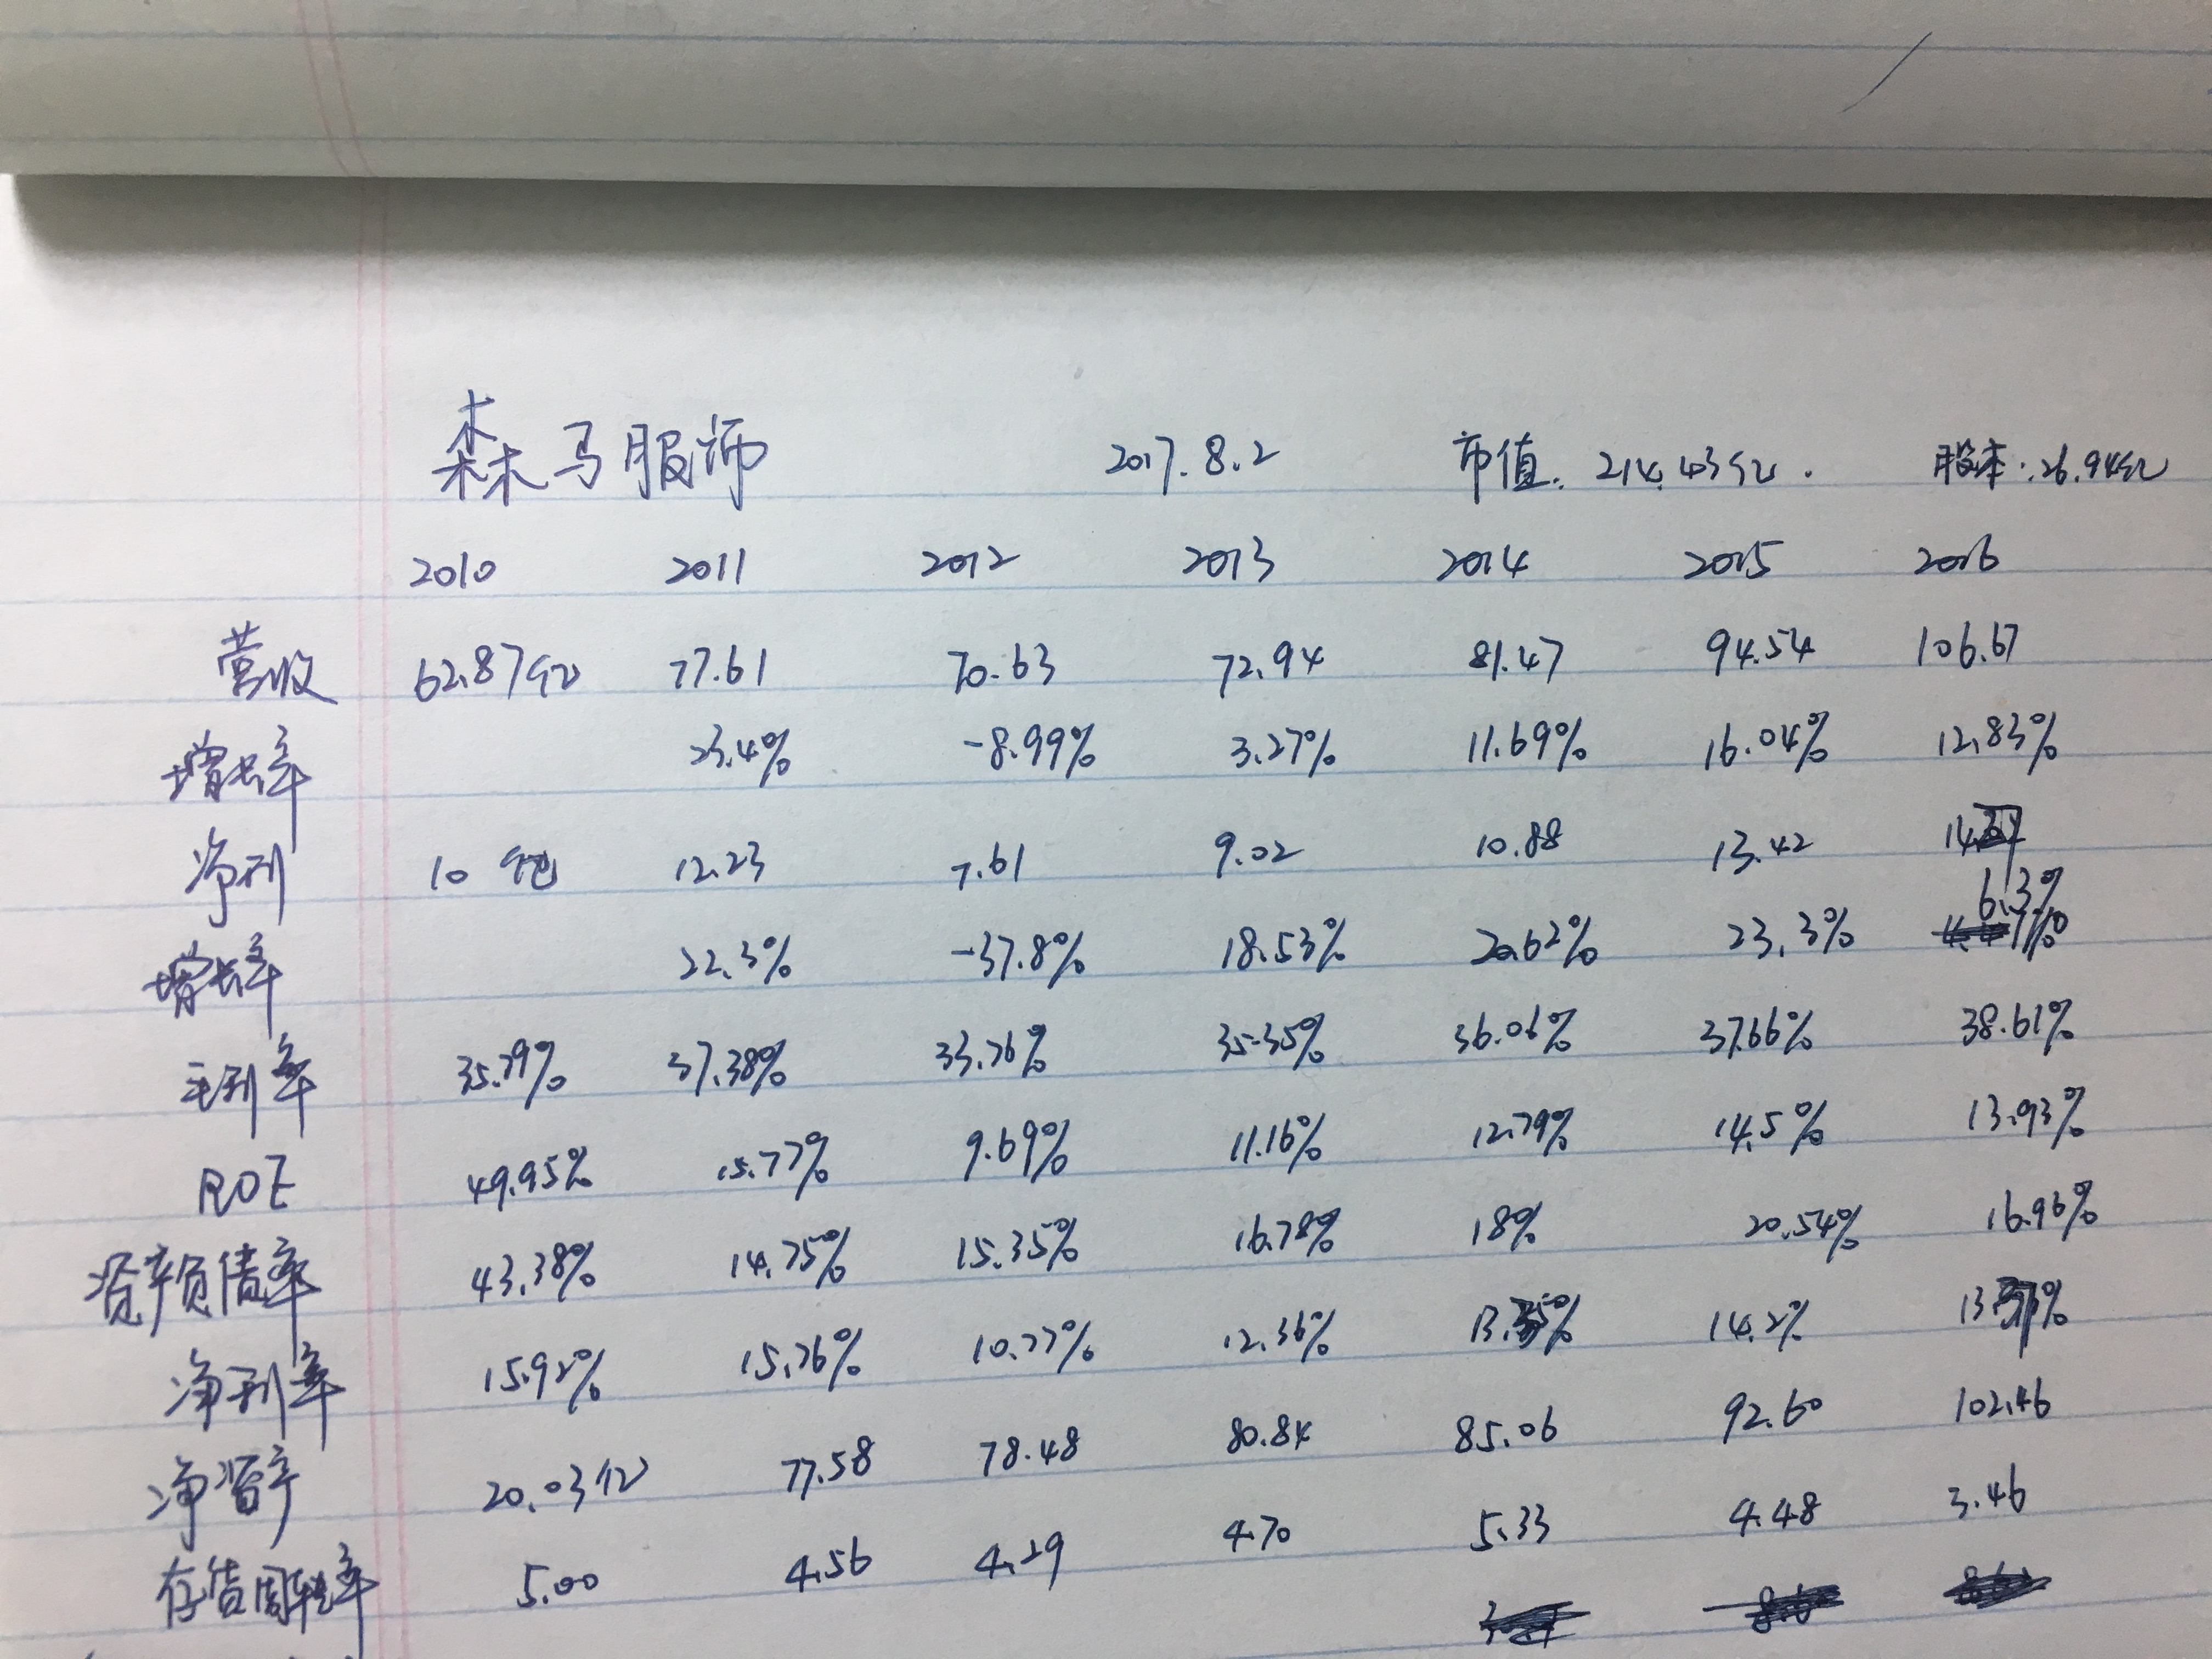 森马服饰 2017.8.2 市值: 214.43亿. 股本: 26.94亿
2010 2011 2012 2013 2014 2015 2016
营收 62.87亿 77.61 70.63 72.94 81.47 94.54 106.67
增长率 23.4% -8.99% 3.27% 11.69% 16.04% 12.83%
净利 10亿 12.23 7.61 9.02 10.88 13.42
增长率 22.3% -37.8% 18.53% 20.62% 23.3% 6.3%
毛利率 35.79% 37.38% 33.76% 35.35% 36.06% 37.66% 38.61%
ROE 49.95% 15.77% 9.69% 11.16% 12.79% 14.5% 13.93%
资产负债率 43.38% 14.75% 15.35% 16.78% 18% 20.54% 16.96%
净利率 15.92% 15.76% 10.77% 12.36% 14.2%
净资产 20.03亿 77.58 78.48 80.84 85.06 92.60 102.46
存货周转率 5.00 4.56 4.29 4.70 5.33 4.48 3.46